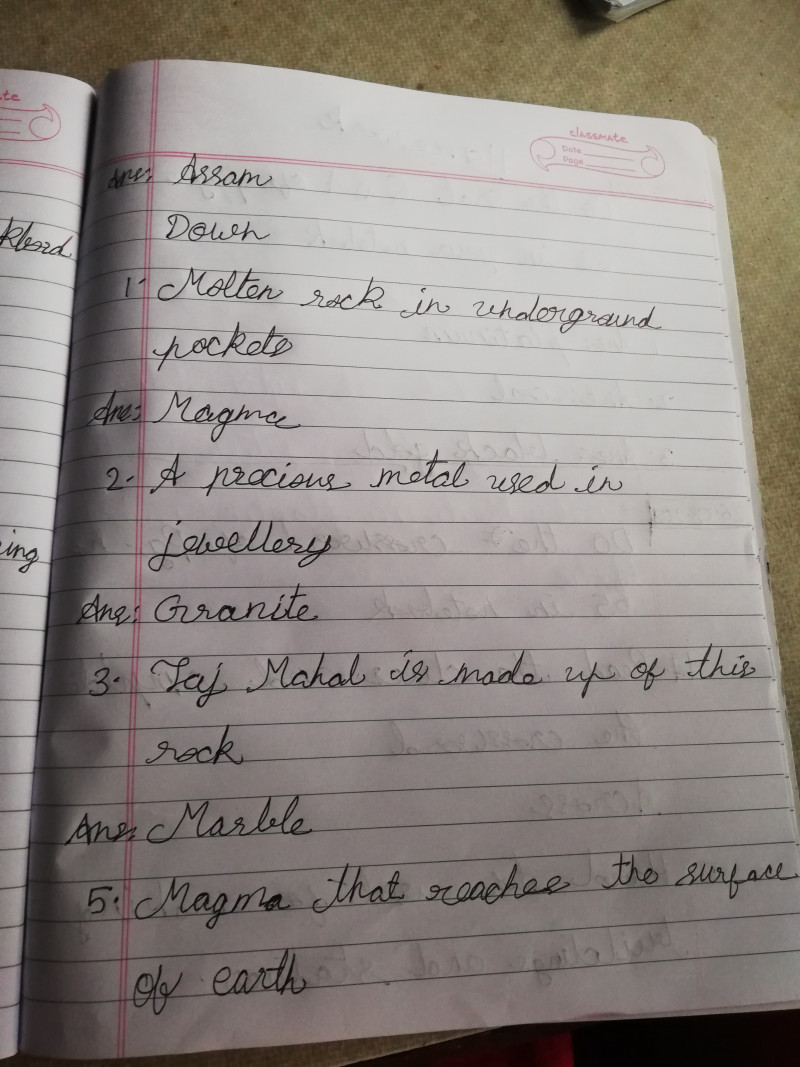 te
kbord
ing
classmate
Date
Page
Ans: Assam
Down
1. Molten rock in underground
pockets
Ans: Magma
2. A precious metal used in
jewellery
Ans: Granite
3. Taj Mahal is made up of this
rock
Ans: Marble
5. Magma that reaches the surface
of earth